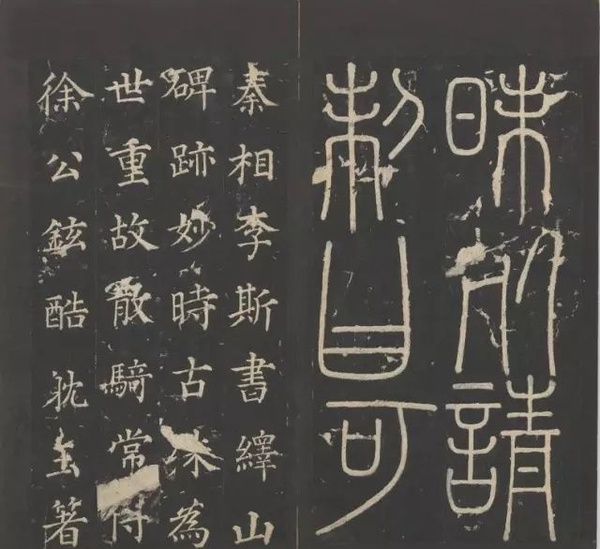 昧死請
制曰可
秦相李斯書繹山
碑跡妙時古殊為
世重故散騎常侍
徐公鉉酷耽玉著